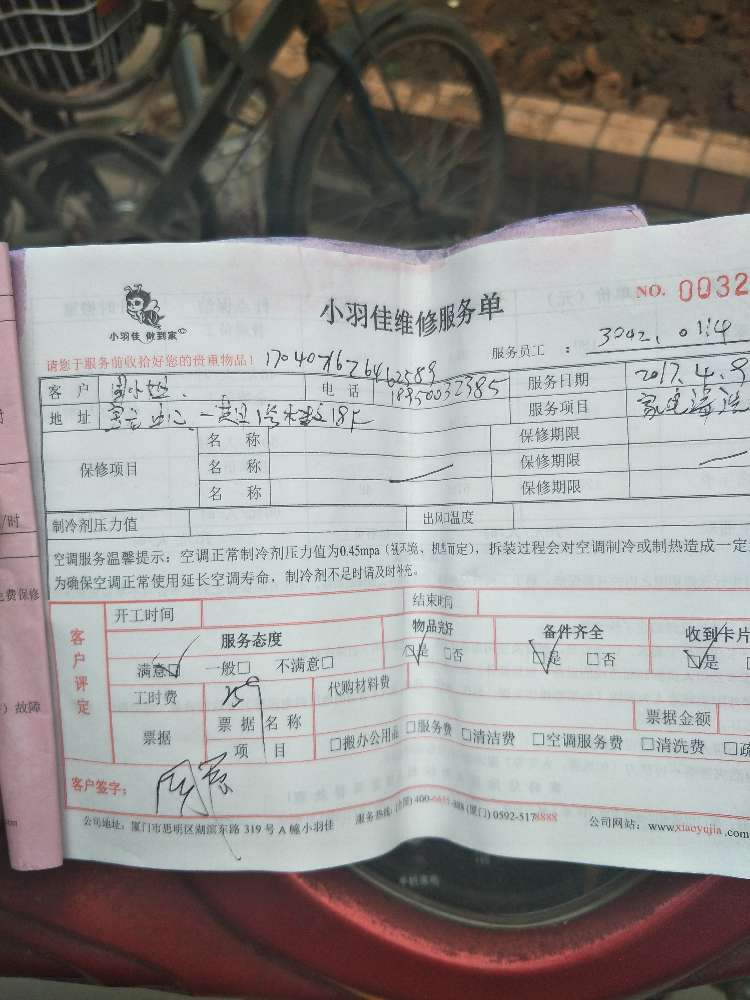 小羽佳 做到家
小羽佳维修服务单
NO. 0032
服务员工 : 3042. 0114
请您于服务前收拾好您的贵重物品!
客 户
电 话 18950032385
服务日期 2017.4.9
地 址
服务项目 家电清洗
保修项目
名 称
保修期限
名 称
保修期限
名 称
保修期限
制冷剂压力值
出风口温度
空调服务温馨提示:空调正常制冷剂压力值为0.45mpa(视环境、机型而定),拆装过程会对空调制冷或制热造成一定
为确保空调正常使用延长空调寿命,制冷剂不足时请及时补充。
客户评定
开工时间
结束时间
服务态度
物品完好
备件齐全
收到卡片
满意□ 一般□ 不满意□
□是 □否
□是 □否
□是
工时费
代购材料费
票据
票 据 名 称
项 目
票据金额
□搬办公用品 □服务费 □清洁费 □空调服务费 □清洗费 □疏
客户签字:
公司地址:厦门市思明区湖滨东路 319 号 A 幢小羽佳
服务热线:(全国)400- (厦门)0592-5178888
公司网站:www.xiaoyujia.com
/时
免费保修
)故障